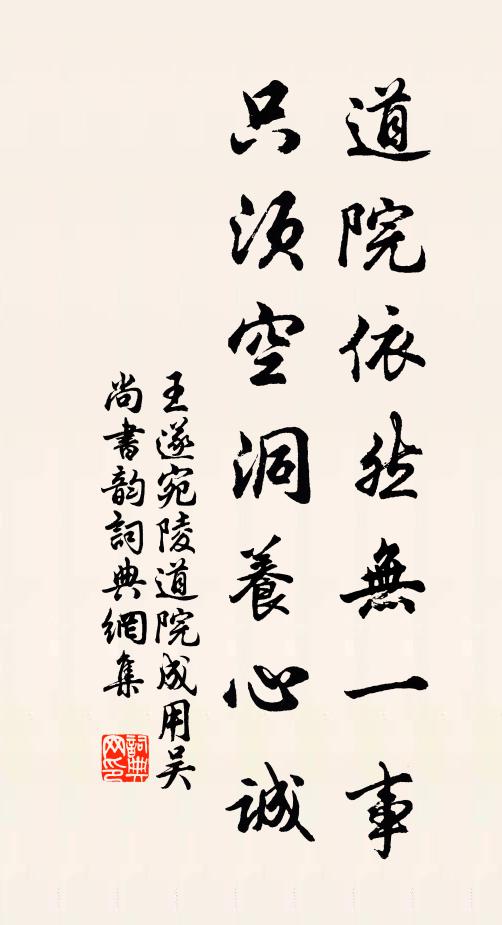 道院依然無一事
只須空洞養心誠
王遂宛陵道院成用吳
尚書韵詞典網集
詞典網印